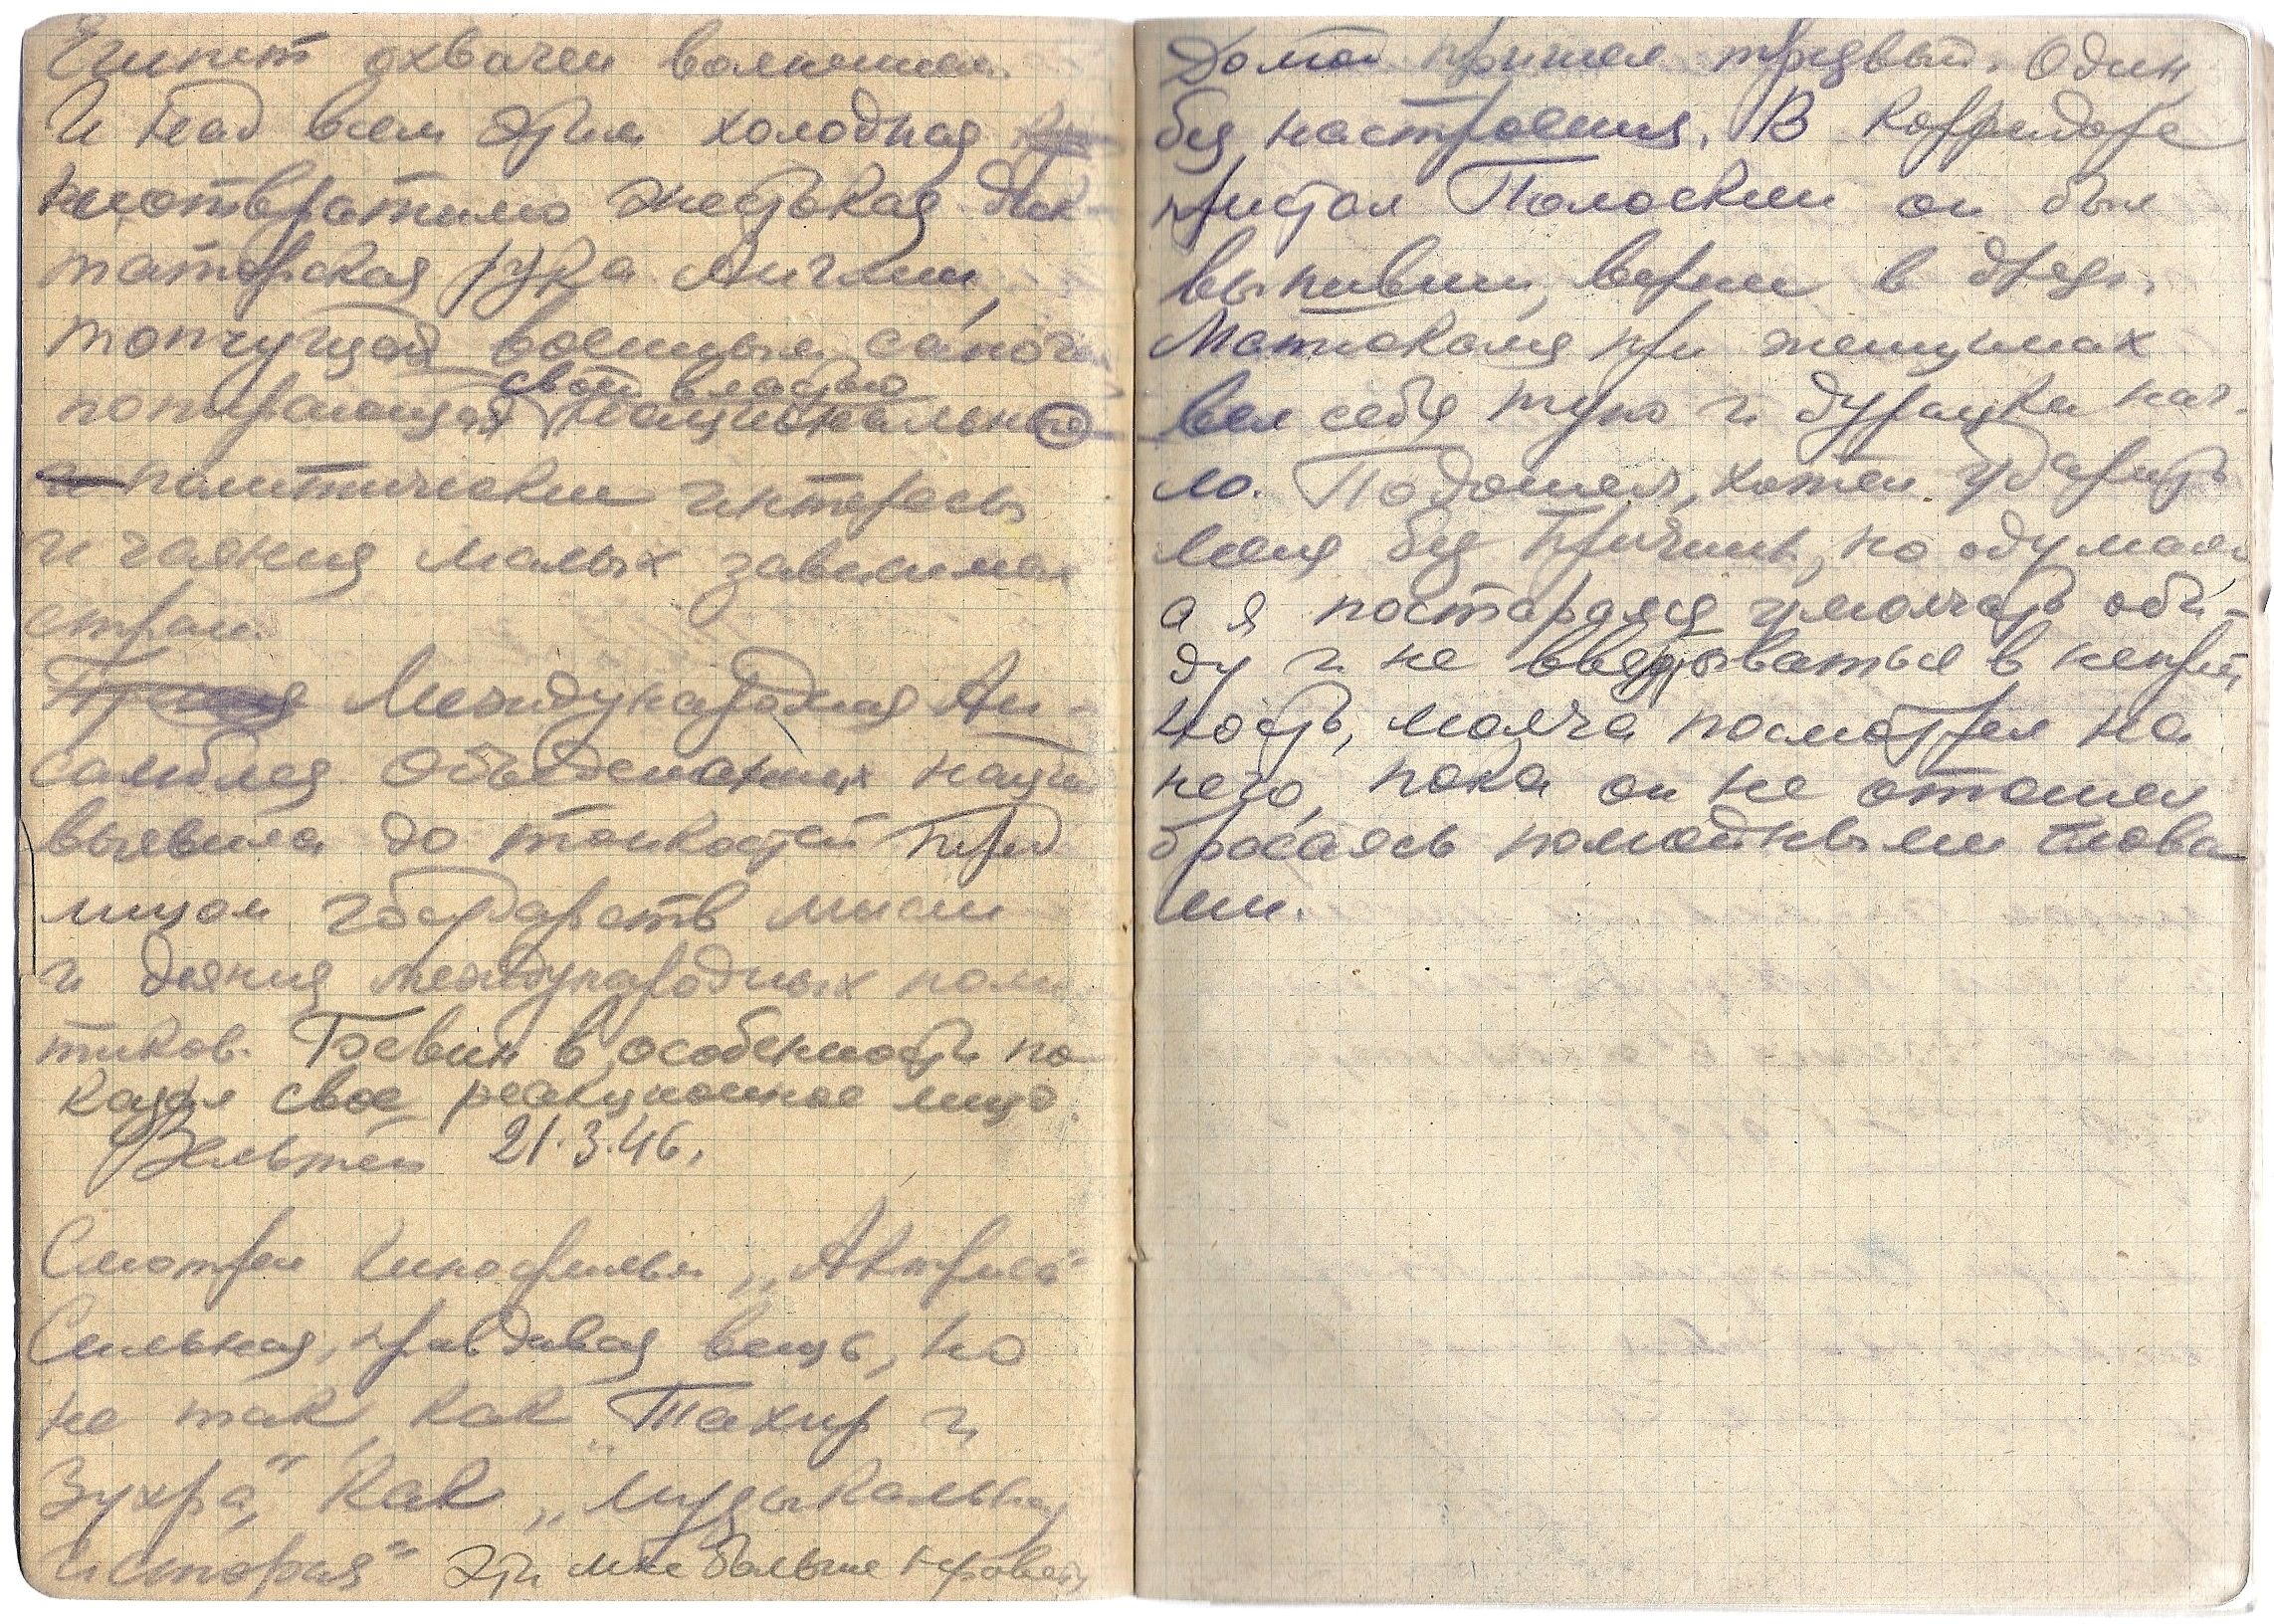 Египет охвачен волнением.
И над всем этим холодная
неотвратимо жестокая дик-
таторская рука Англии,
топчущей военным сапогом
попирающая своей властью национальные
политические интересы
и чаяния малых зависимых
стран.
Международная Ан-
самблея Объединенных наций
выявила до тонкостей пред
лицом государств мысли
и деяния международных поли
тиков. Бевин в особенности по
казал свое реакционное лицо.
Вельтен 21.3.46.
Смотрел кинофильм „Актриса“
Сильная, правдивая вещь, но
не так как „Тахир и
Зухра“, как „Музыкальная
история“ Эти мне больше нравятся
Домой пришел трезвый. Один,
без настроения. В корридоре
пристал Полоскин он был
выпивши, верни в дрезь.
Матюкаля при женщинах
вел себя тупо и дурацки наг-
ло. Подошел, хотел ударить
меня без причины, но одумался
а я постарался умолчать оби-
ду и не ввязываться в неприят
ность, молча посмотрел на
него, пока он не отошел
бросаясь помойными слова
ми.